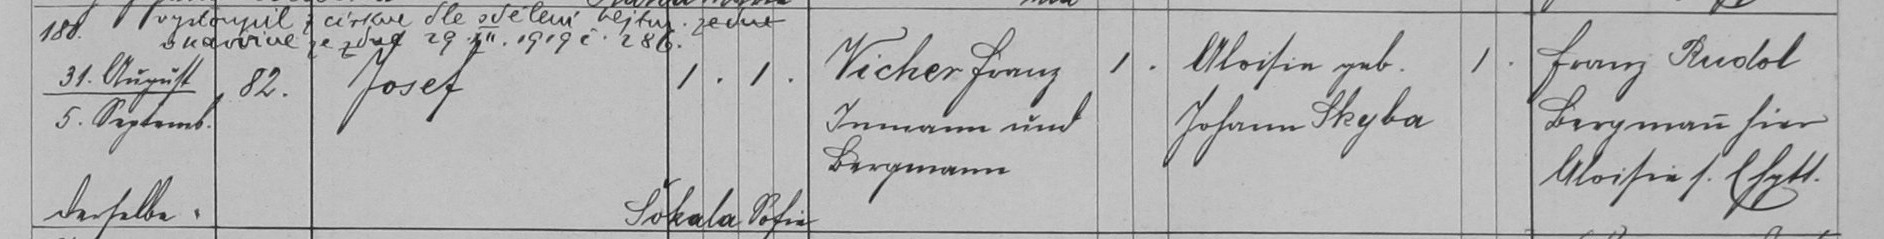 188. vystoupil z církve dle sdělení hejtm. 
ze dne 29.XII.1919 č. 286.
31. August 82. Josef 1. 1. Vicher Franz 1. Aloisie geb. 1. Franz Rudol
5. Septemb. Inmann und Johann Skyba Bergmann hier
Bergmann Aloisie s. Ehgtt.
derselbe. Šokala Sofie